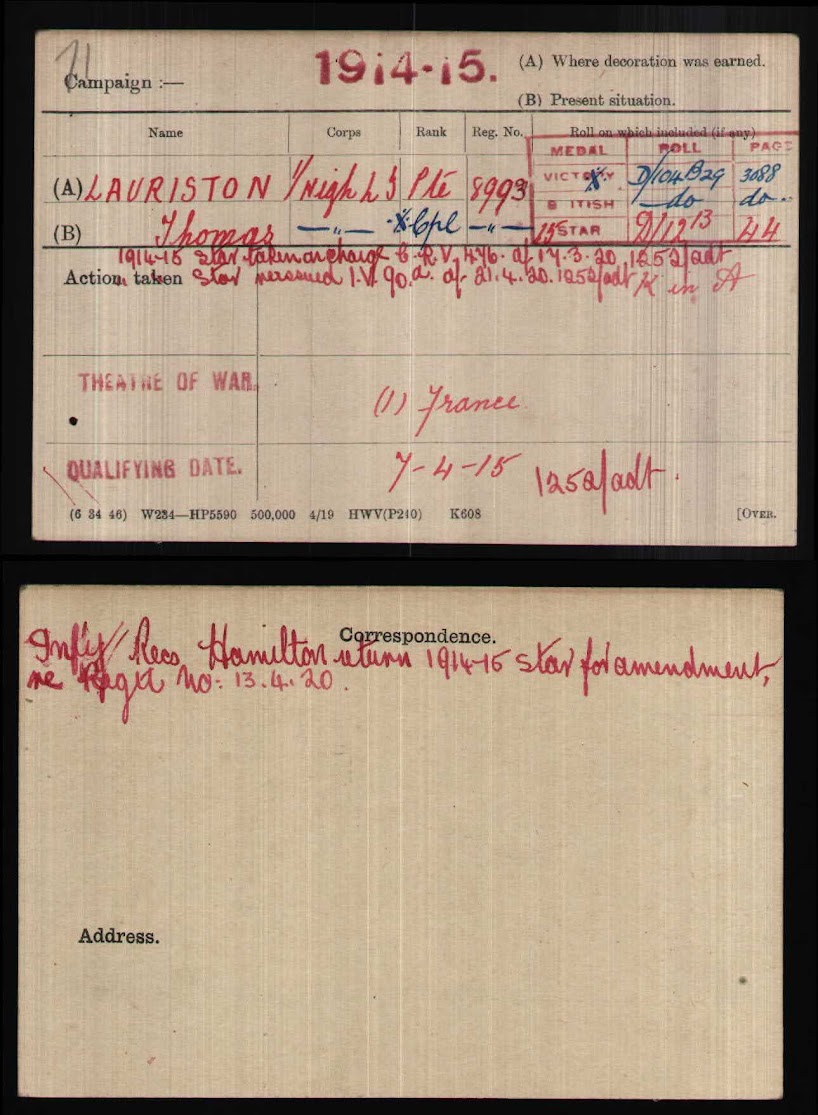 71
Campaign :— 1914-15. (A) Where decoration was earned.
(B) Present situation.
Name Corps Rank Reg. No. Roll on which included (if any)
MEDAL ROLL PAGE
(A) LAURISTON 1/High L I Pte 8993 VICTORY X D/104 B29 3088
BRITISH —do— do..
(B) Thomas —"— X Cpl —"— 15 STAR D/12 13 44
1914-15 Star taken on charge C.R.V. 476. of 17.3.20. 1252/adt
Action taken " Star reissued I.V. 90.a. of 21.4.20. 1252/adt K in A
THEATRE OF WAR. (1) France
QUALIFYING DATE. 7-4-15 1252/adt.
(6 34 46) W234—HP5590 500,000 4/19 HWV(P240) K608 [OVER.
Correspondence.
Infy Recs Hamilton return 1914-15 star for amendment,
re Regtl No: 13.4.20.
Address.